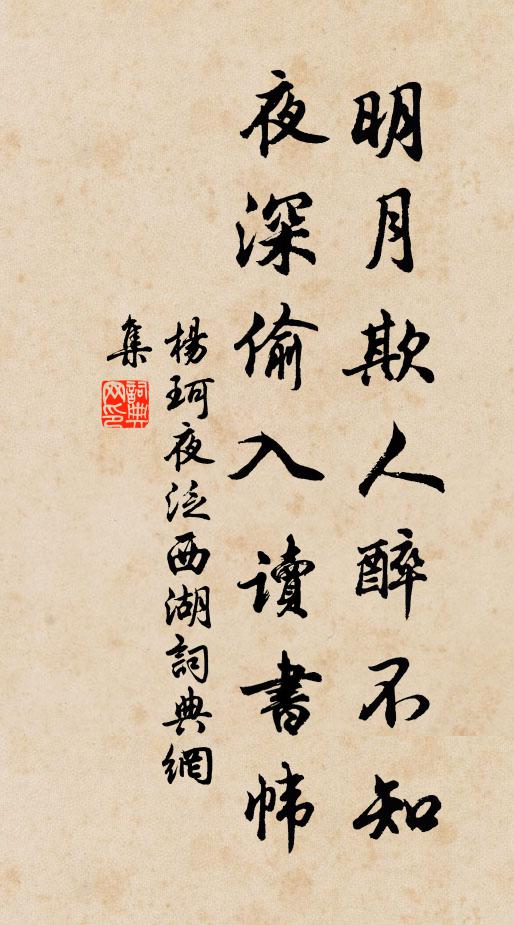 明月欺人醉不知
夜深偷入讀書幃
楊珂夜泛西湖詞典網
集
詞典
网印